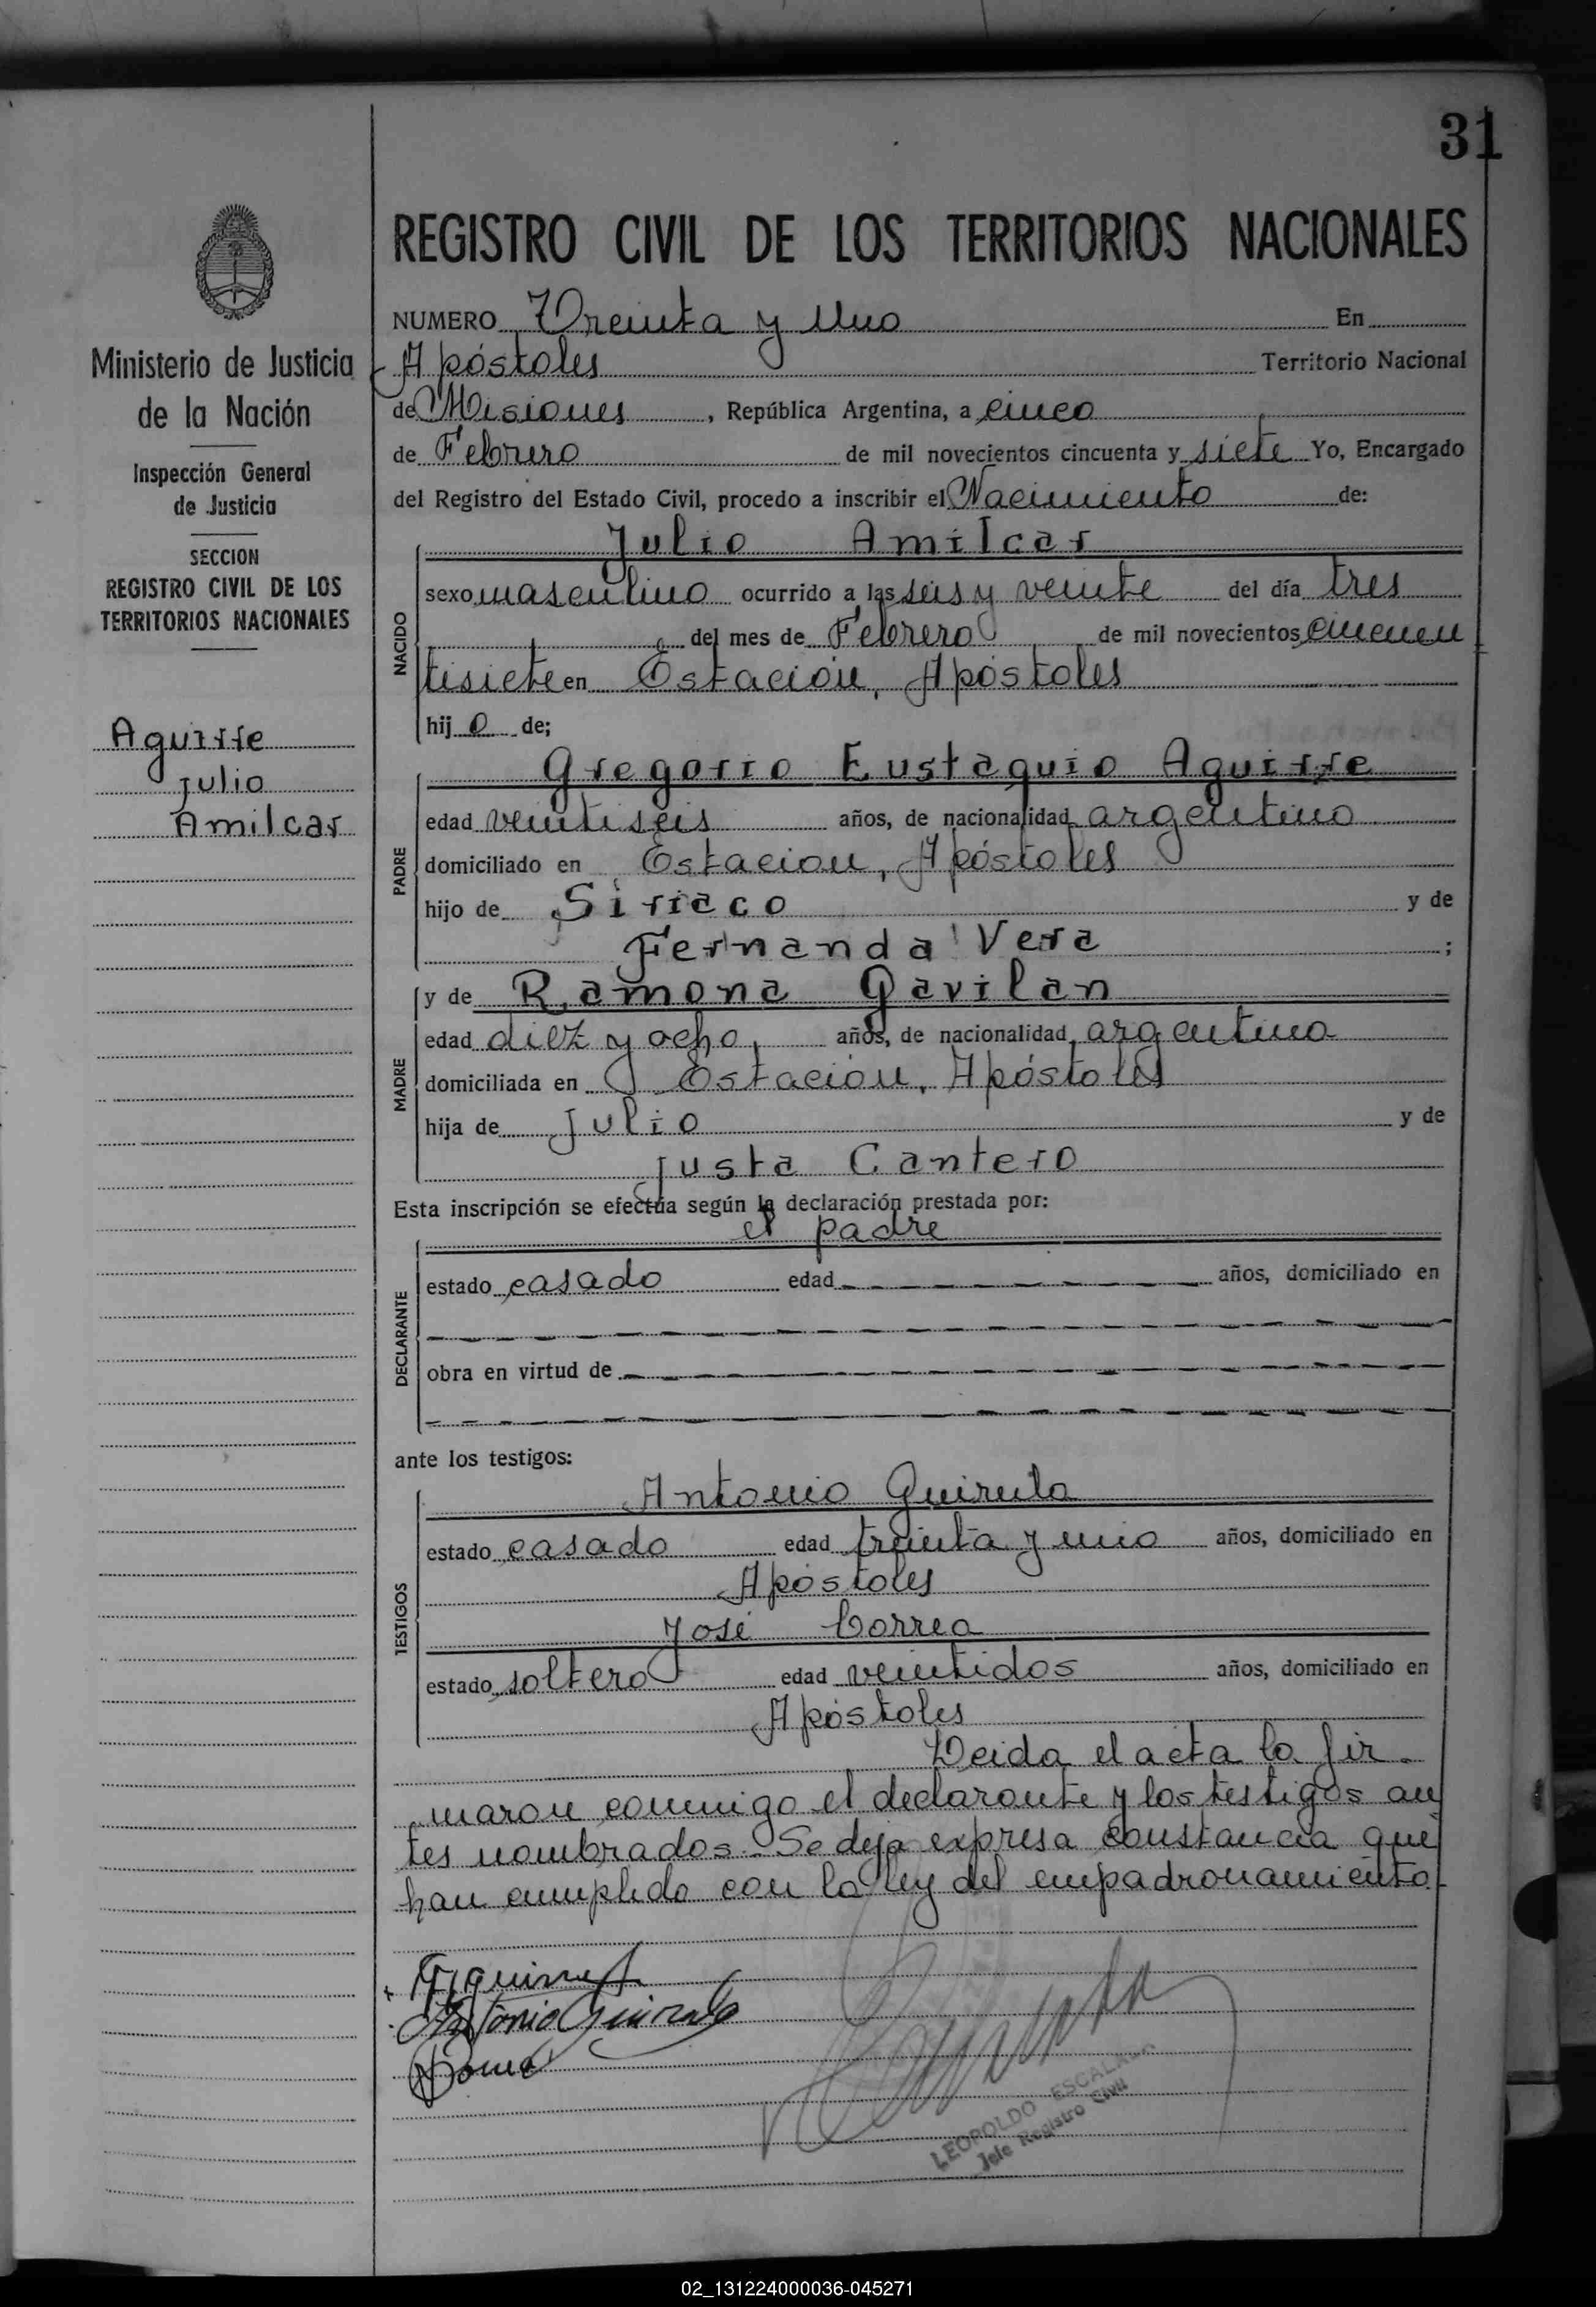 31
REGISTRO CIVIL DE LOS TERRITORIOS NACIONALES
Ministerio de Justicia
de la Nación
Inspección General
de Justicia
SECCION
REGISTRO CIVIL DE LOS
TERRITORIOS NACIONALES
Aguirre
Julio
Amilcar
NUMERO Treinta y Uno En
Apóstoles Territorio Nacional
de Misiones, República Argentina, a cinco
de Febrero de mil novecientos cincuenta y siete Yo, Encargado
del Registro del Estado Civil, procedo a inscribir el Nacimiento de:
NACIDO
Julio Amilcar
sexo masculino ocurrido a las seis y veinte del día tres
del mes de Febrero de mil novecientos cincuen
tisiete en Estación, Apóstoles
hijo de;
PADRE
Gregorio Eustaquio Aguirre
edad veintiseis años, de nacionalidad argentino
domiciliado en Estacion, Apóstoles
hijo de Siriaco y de
Fernanda Vera ;
MADRE
y de Ramona Gavilan
edad diez y ocho, años, de nacionalidad argentina
domiciliada en Estación, Apóstoles
hija de Julio y de
Justa Cantero
Esta inscripción se efectúa según la declaración prestada por:
DECLARANTE
el padre
estado casado edad años, domiciliado en
obra en virtud de
ante los testigos:
TESTIGOS
Antonio Guirula
estado casado edad treinta y uno años, domiciliado en
Apóstoles
José Correa
estado soltero edad veintidos años, domiciliado en
Apóstoles
Leida el acta la fir-
maron conmigo el declarante y los testigos an
tes nombrados. Se deja expresa constancia que
han cumplido con la ley del empadronamiento
Antonio Guirula
LEOPOLDO ESCALADA
Jefe Registro Civil
02_131224000036-045271